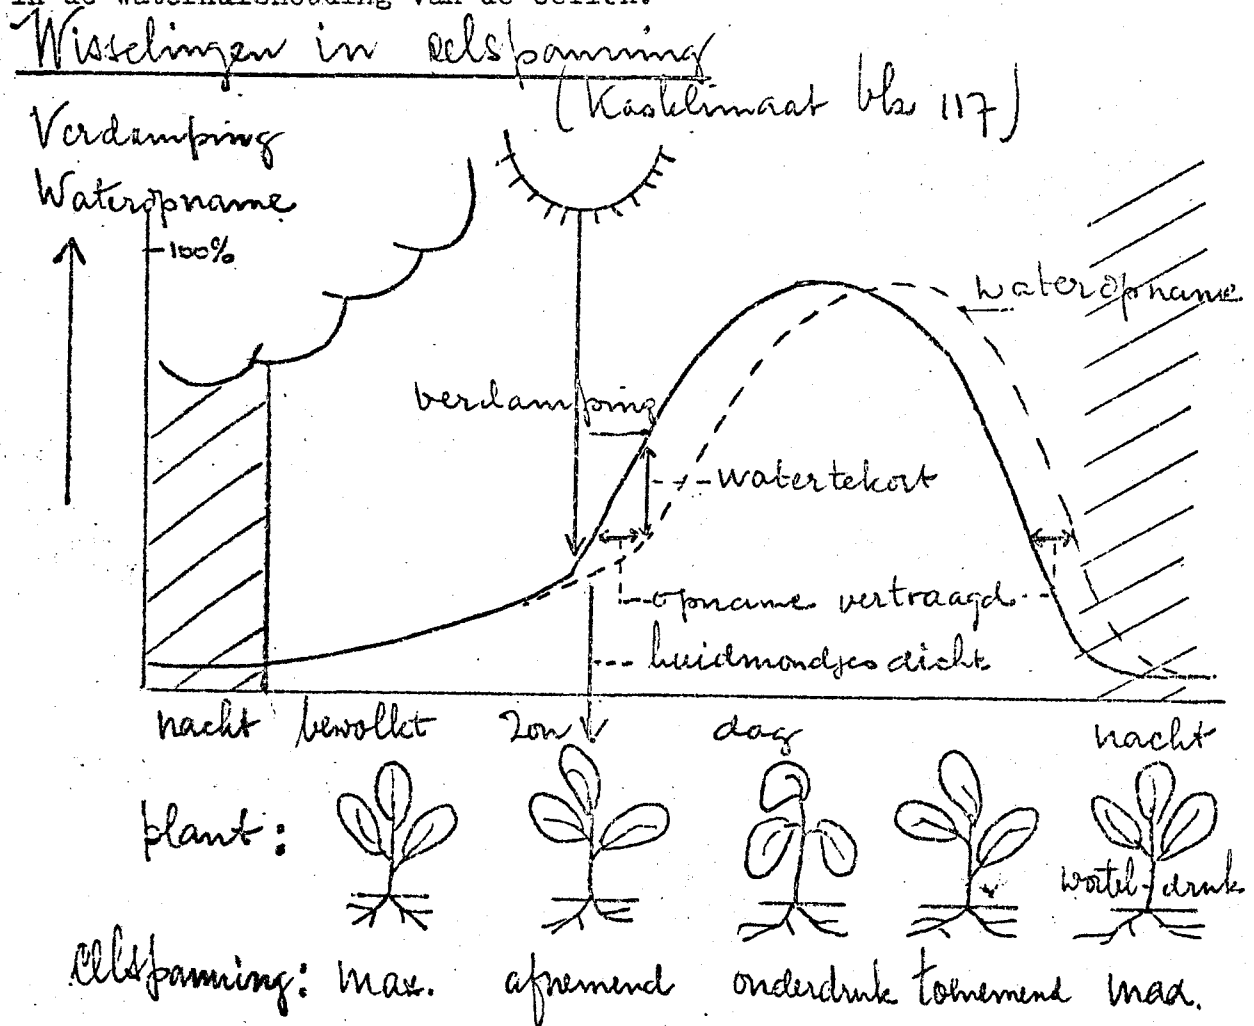 in de waterhuishouding van de cellen.
Wisselingen in celspanning
(Kasklimaat blz 117)
Verdamping
Wateropname
100%
wateropname
verdamping
watertekort
opname vertraagd
huidmondjes dicht
nacht bewolkt zon dag nacht
plant:
wortel-druk
celspanning: max. afnemend onderdruk toenemend max.